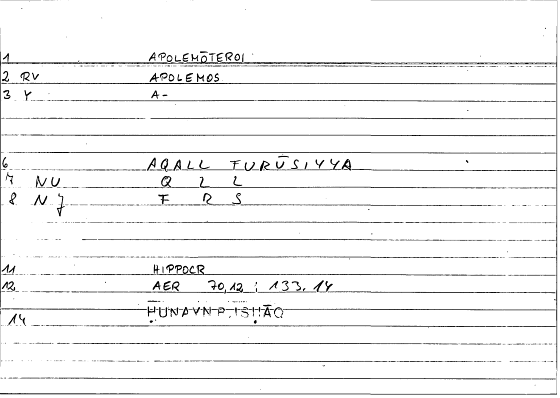 1 APOLEMŌTEROI
2 RV APOLEMOS
3 Y A-
6 AQALL FURŪSIYYA
7 NU Q L L
8 NJ F R S
11 HIPPOCR
12 AER 70,12 ; 133,14
14 ḤUNAYN B. ISḤĀQ